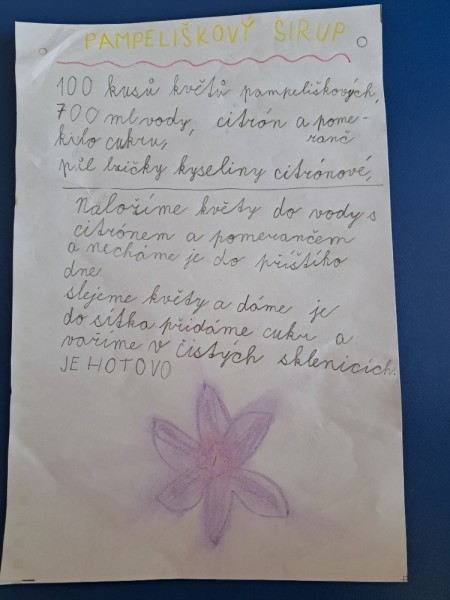 PAMPELIŠKOVÝ SIRUP
100 kusů květů pampeliškových,
700 ml vody, citrón a pome-
kilo cukru, ranč
půl lžičky kyseliny citrónové,
Naložíme květy do vody s
citrónem a pomerančem
a necháme je do příštího
dne.
slejeme květy a dáme je
do sítka přidáme cukr a
vaříme v čistých sklenicích.
JE HOTOVO